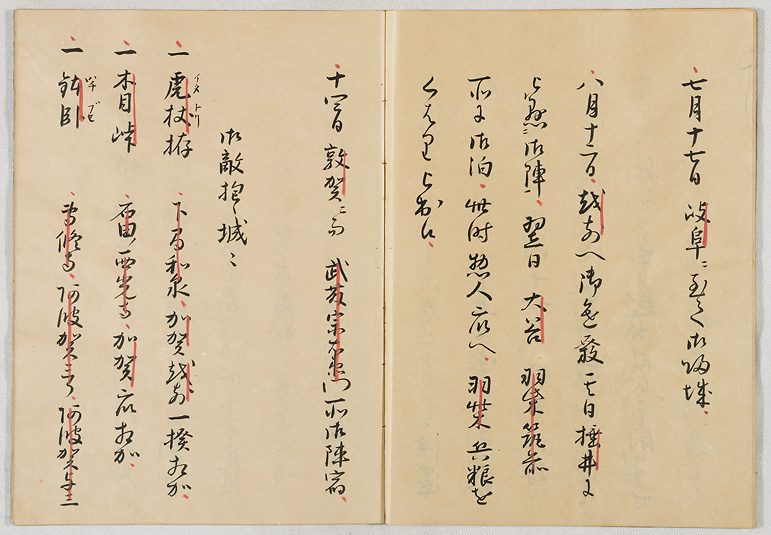 七月十七日 岐阜ニ至て御帰城、
八月十二日、越前へ御進發其日垂井に
被懸御陣、翌日 大谷 羽柴筑前
所に御泊、此時惣人衆へ、羽柴兵粮を
くはり被出候、
十四日 敦賀ニ而 武藤宗右衛門所御陣宿、
御敵抱之城ニ
一 虎杖栫 下間和泉、加賀越前一揆相加、
イタドリ
一 木目峠 石田西光寺、加賀衆相加、
一 鉢卧 専修寺、阿波賀三郎、阿波賀与三